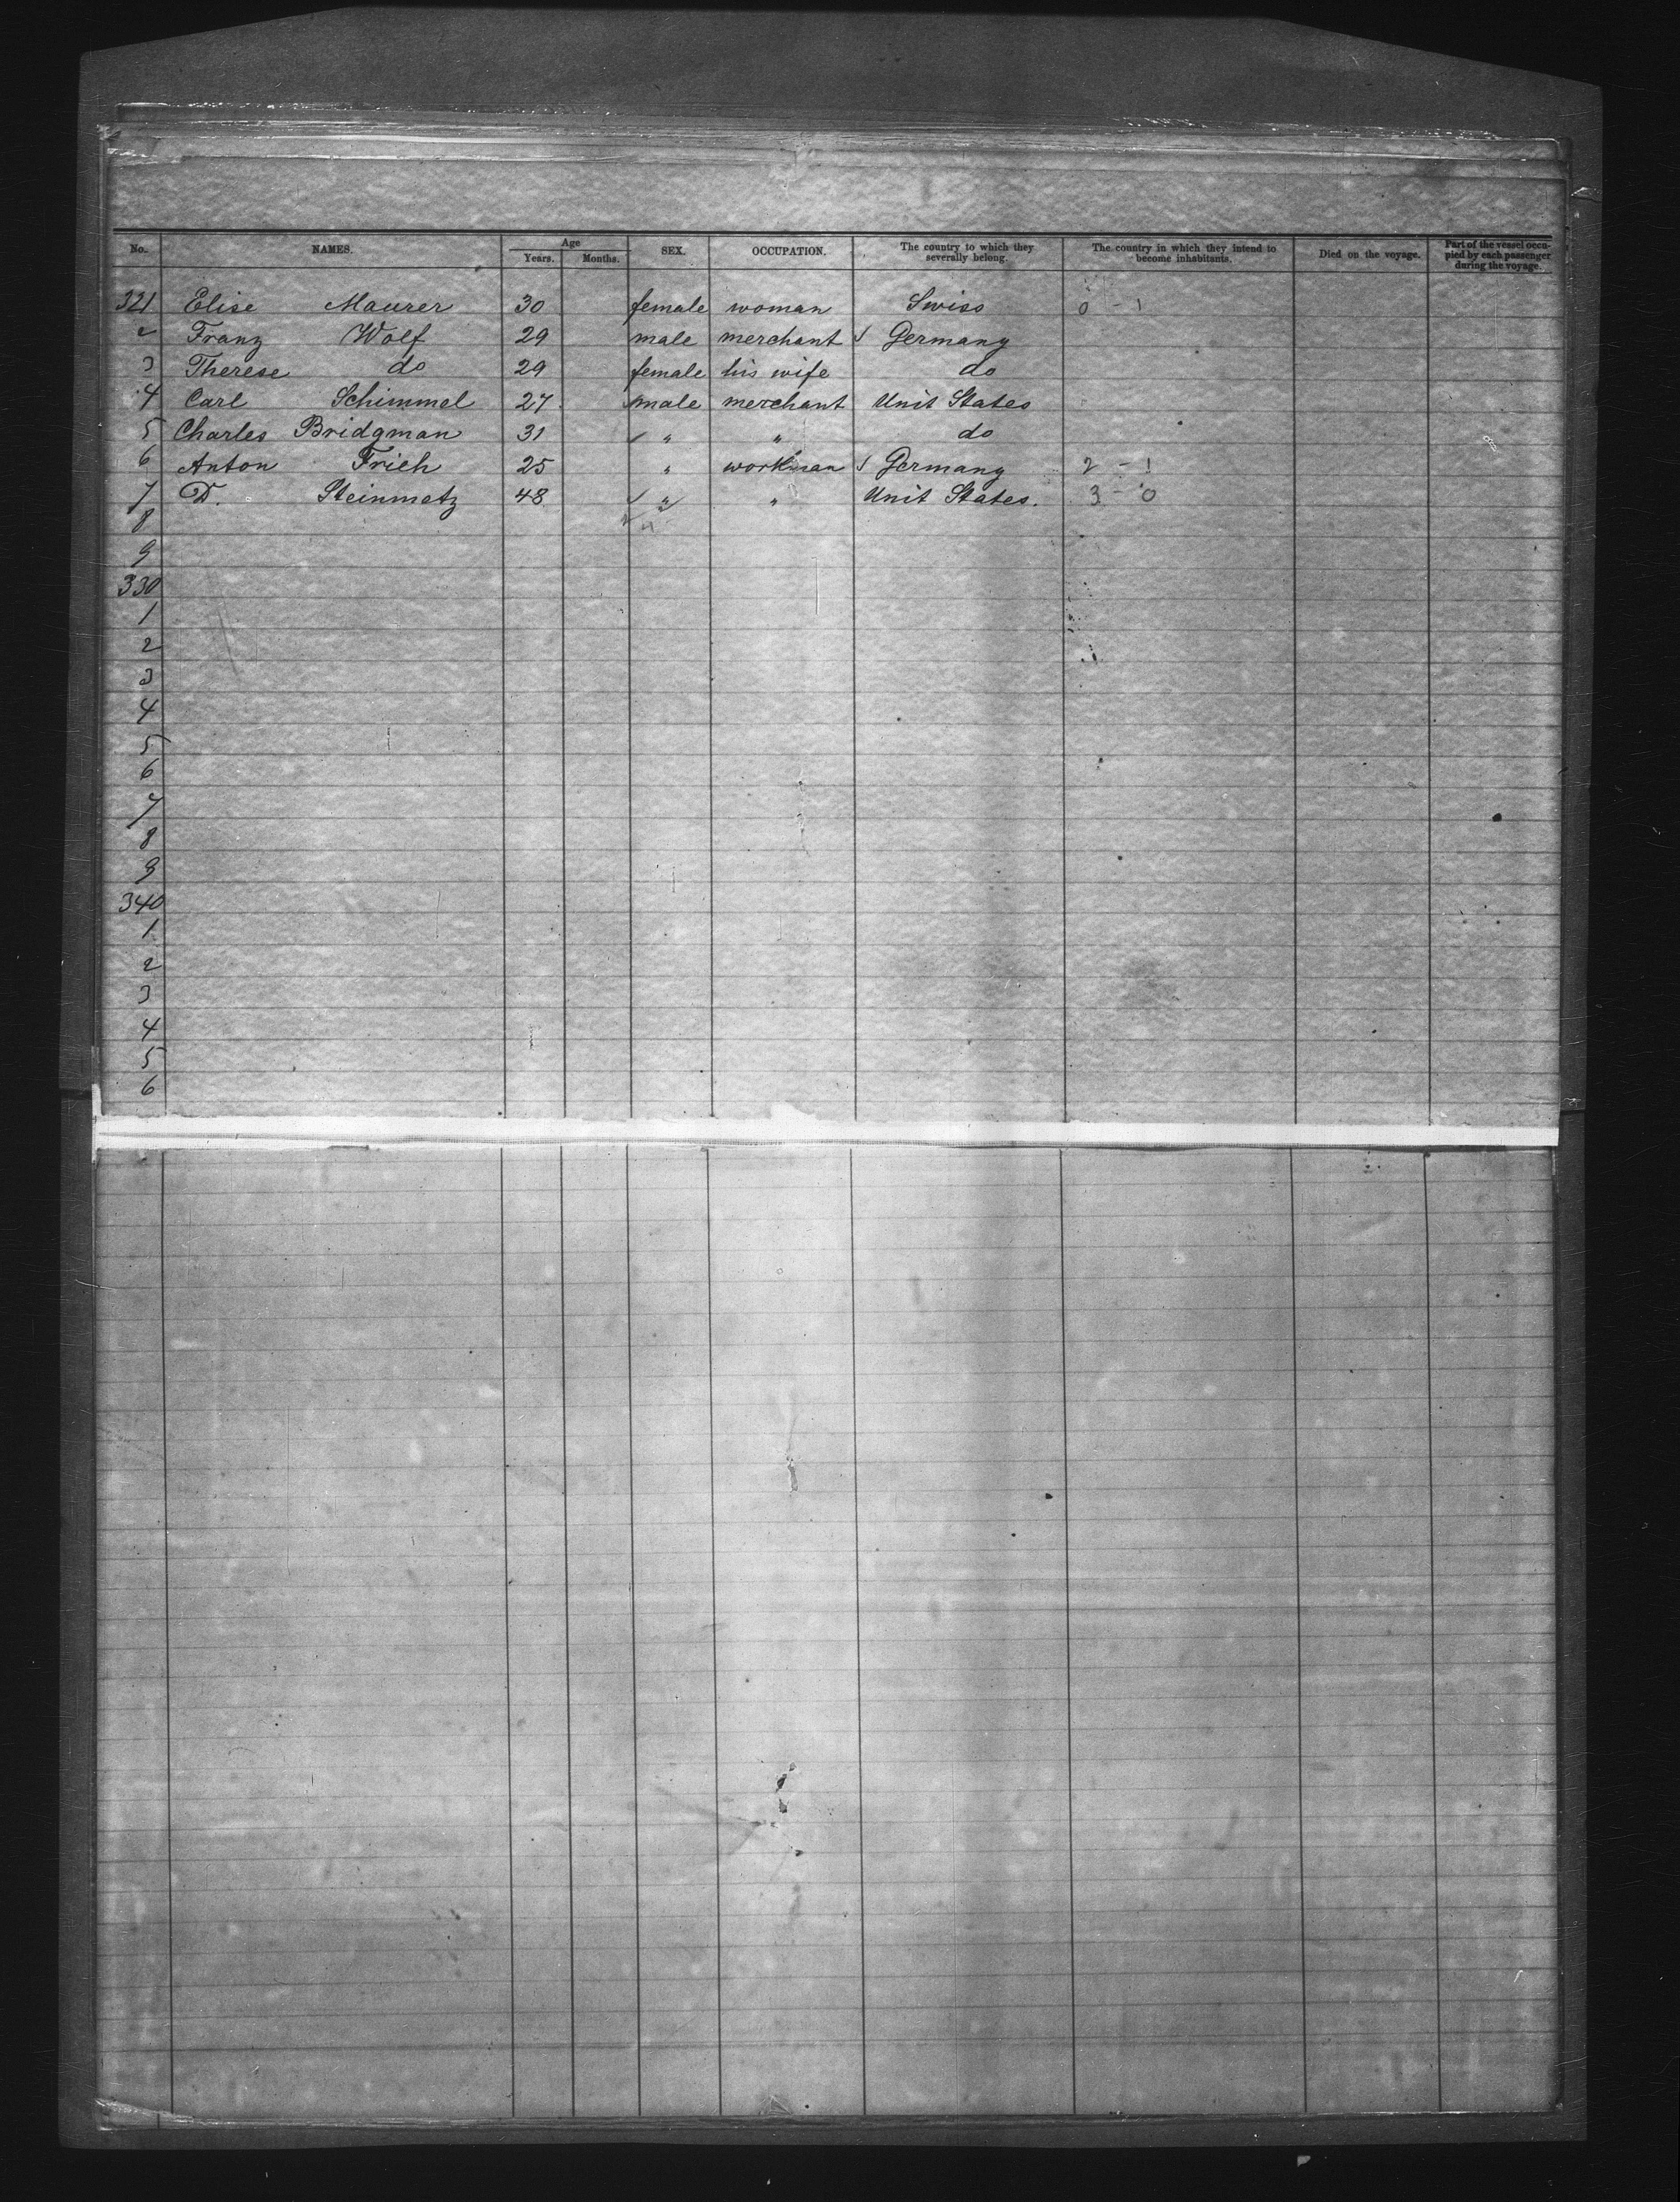 No. NAMES. Age Years. Months. SEX. OCCUPATION. The country to which they severally belong. The country in which they intend to become inhabitants. Died on the voyage. Part of the vessel occupied by each passenger during the voyage.
321 Elise Maurer 30 female woman Swiss 0 - 1
2 Franz Wolf 29 male merchant Germany
3 Therese do 29 female his wife do
4 Carl Schimmel 27 male merchant Unit States
5 Charles Bridgman 31 " " do
6 Anton Frich 25 " workman Germany 2 - 1
7 D. Steinmetz 48 " " Unit States. 3 - 0
8
9
330
1
2
3
4
5
6
7
8
9
340
1
2
3
4
5
6